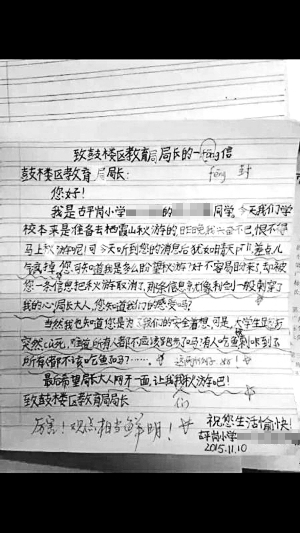 致鼓楼区教育局局长的一fēng信
鼓楼区教育局局长: fēng 封
您好!
我是古平岗小学 的 同学,今天我们学
校本来是准备去栖霞山秋游的,昨晚我兴奋不已,恨不得
马上秋游呢!可今天听到您的消息后犹如晴天pī lì,差点儿
气疯掉,您可知道我是多么盼望秋游?好不容易盼来了,却被
您一条信息把秋游取消了,那条信息就像利剑一般刺穿了
我的心,局长大人,您知道我们的感受吗?
当然我也知道您是为了我们的安全着想,可是,大学生跑步
突然cù死,难道所有人都不应该跑步了吗?有人吃鱼刺卡到了,
所有人都不该吃鱼吗?……
最后希望局长大人网开一面,让我们秋游吧!
致鼓楼区教育局局长
厉害!观点相当鲜明!
祝您生活愉快!
古平岗小学
2015.11.10